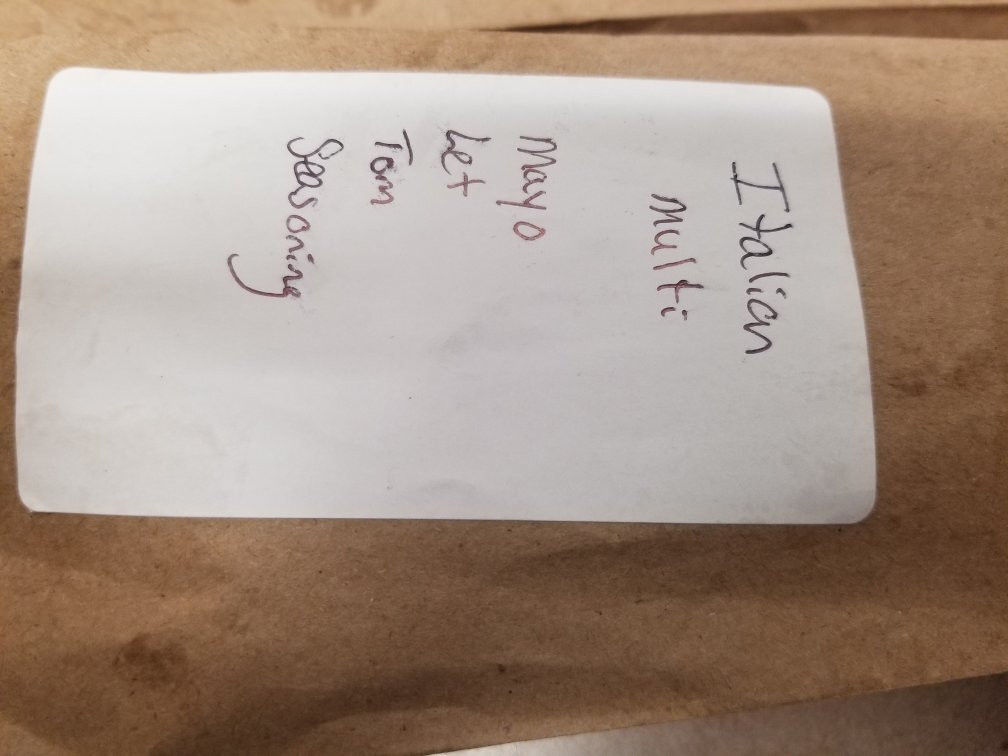 Italian
Multi
Mayo
Let
Tom
Seasoning